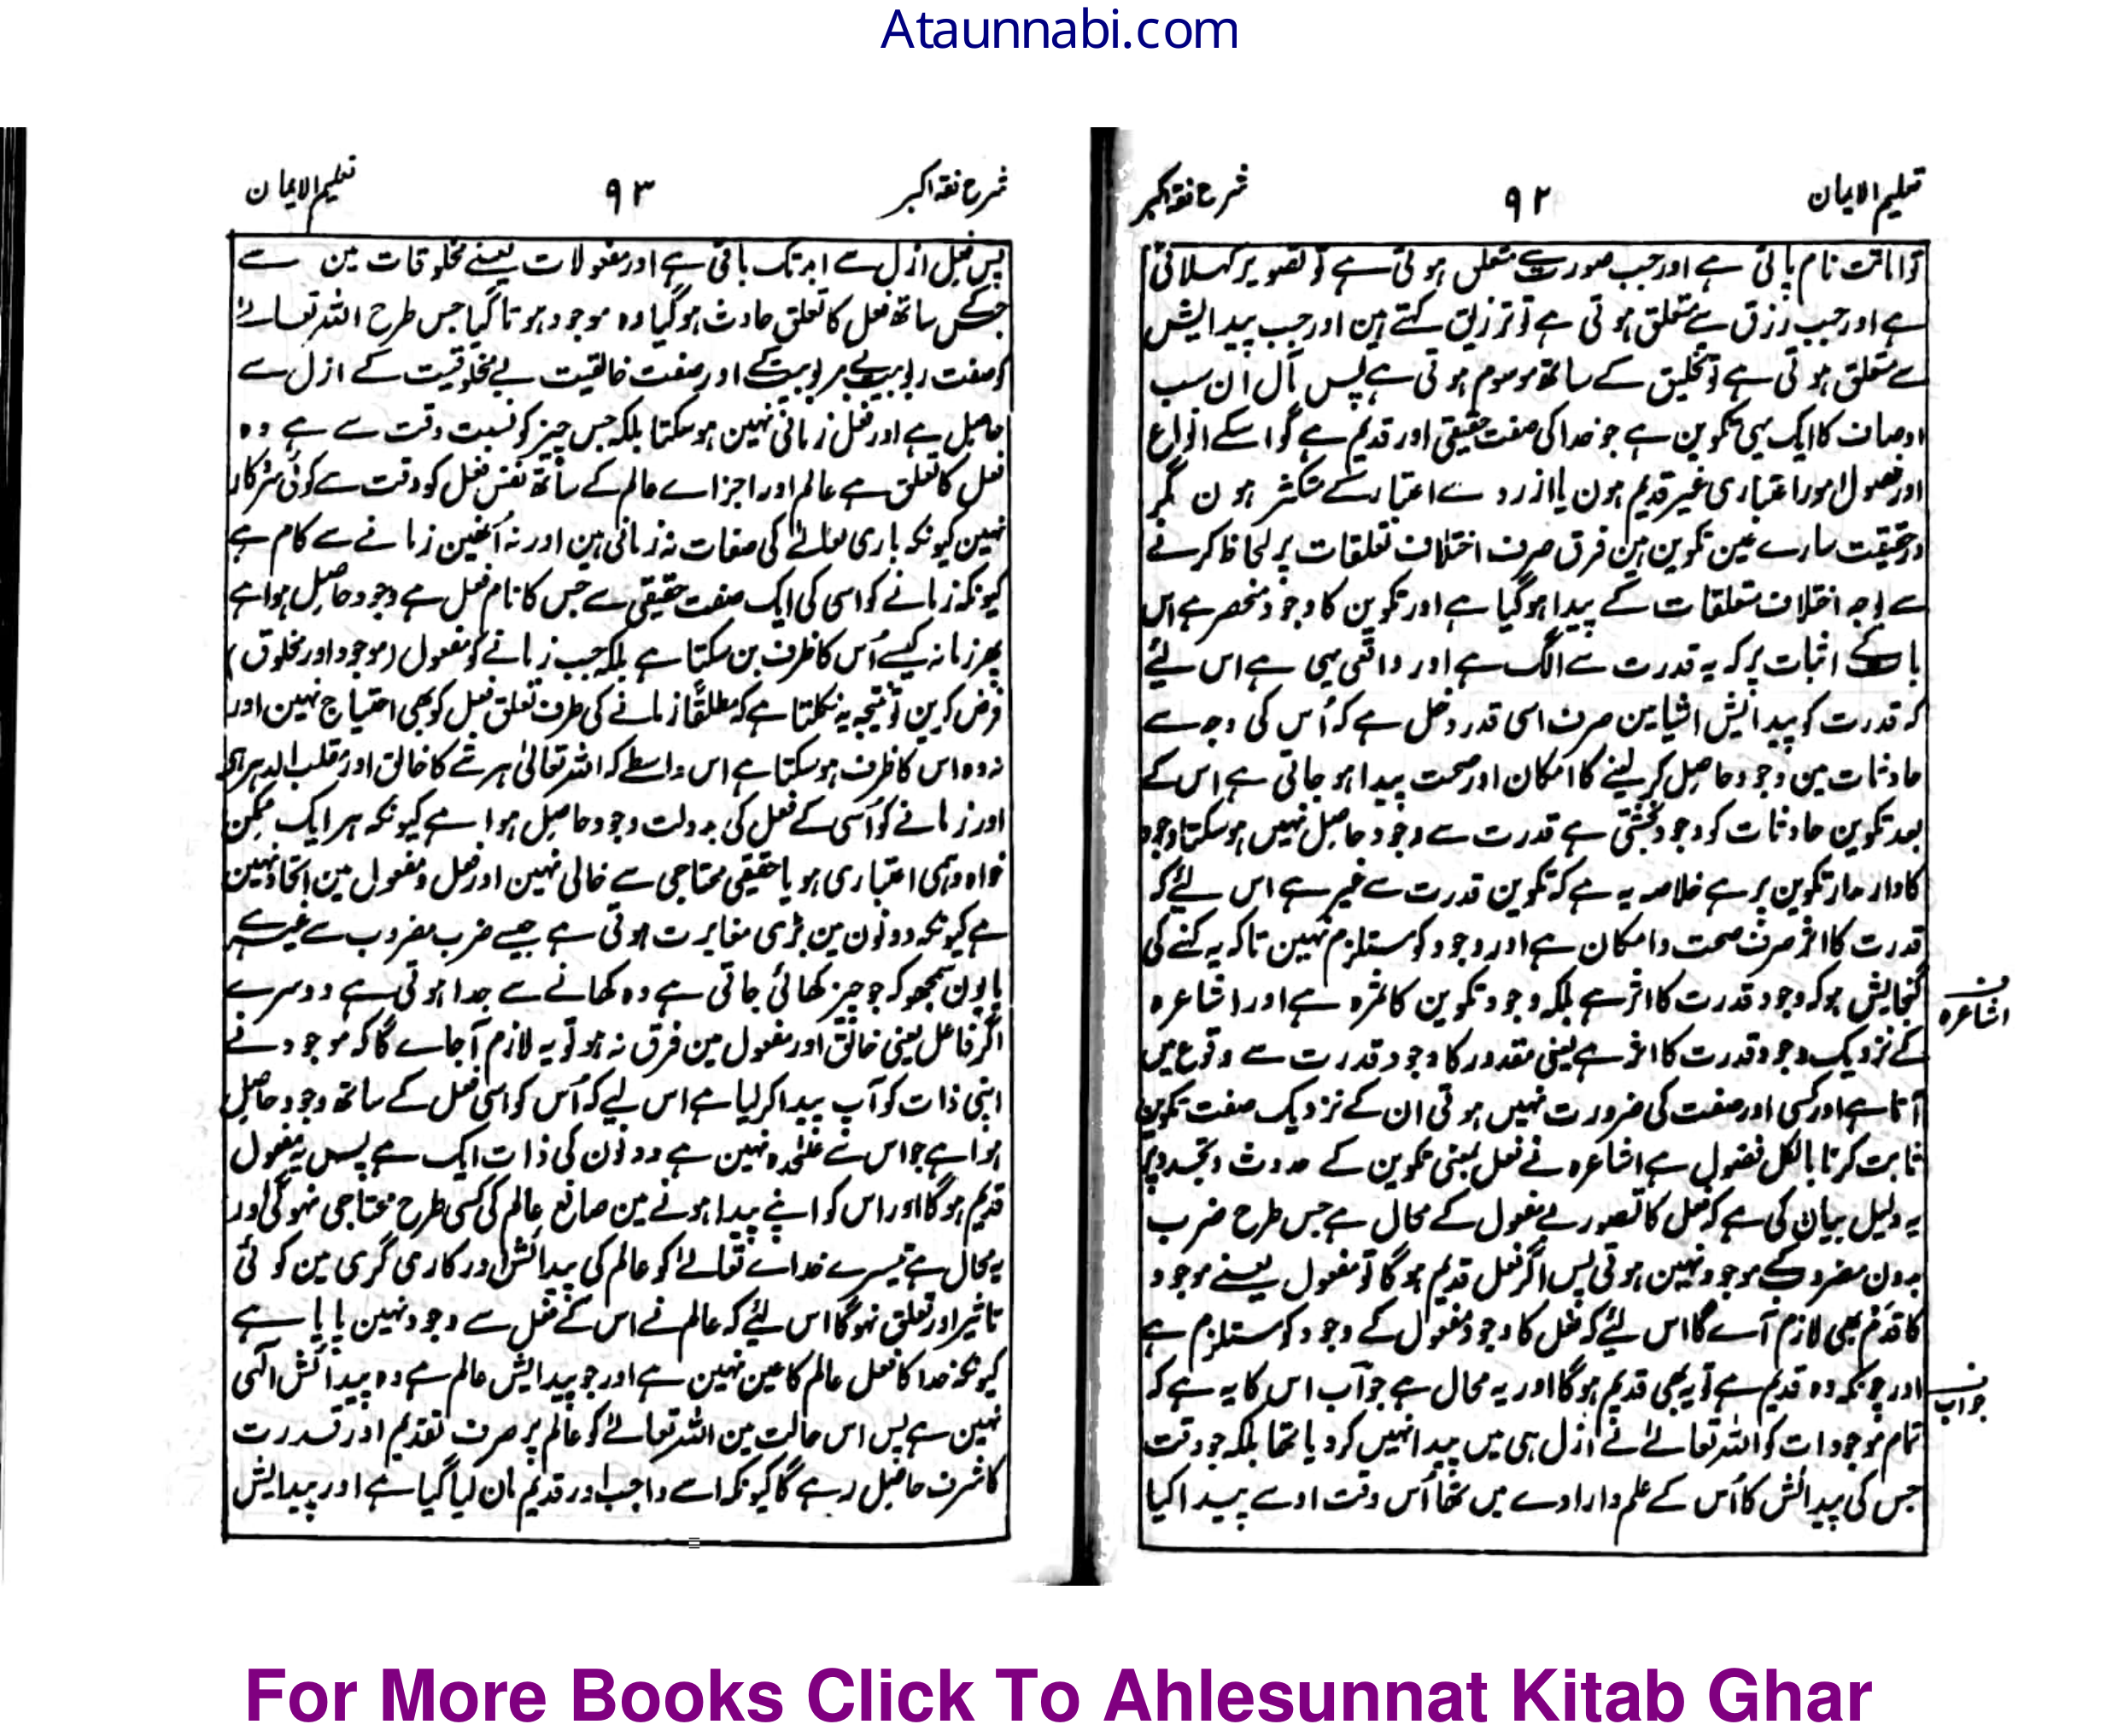 Ataunnabi.com
تعلیم الایمان ۹۲ شرح فقہ اکبر
تو اماتت نام پاتی ہے اور جب صورت سے متعلق ہوتی ہے تو تصویر کہلاتی
ہے اور جب رزق سے متعلق ہوتی ہے تو ترزیق کہتے ہین اور جب پیدایش
سے متعلق ہوتی ہے تو تخلیق کے ساتھ موسوم ہوتی ہے پس مآل ان سب
اوصاف کا ایک یہی تکوین ہے جو خدا کی صفت حقیقی اور قدیم ہے گو اسکے انواع
اور فصول امور اعتباری غیر قدیم ہون یا ازروے اعتبار کے متکثر ہون مگر
درحقیقت سارے عین تکوین ہین فرق صرف اختلاف تعلقات پر لحاظ کرنے
سے بوجہ اختلاف متعلقات کے پیدا ہوگیا ہے اور تکوین کا وجود منحصر ہے اس
بات کے اثبات پر کہ یہ قدرت سے الگ ہے اور واقعی یہی ہے اس لئے
کہ قدرت کو پیدائش اشیا مین صرف اسی قدر دخل ہے کہ اُس کی وجہ سے
حادثات مین وجود حاصل کر لینے کا امکان اور صحت پیدا ہو جاتی ہے اس کے
بعد تکوین حادثات کو وجود بخشتی ہے قدرت سے وجود حاصل نہیں ہوسکتا وجود
کا دار مدار تکوین پر ہے خلاصہ یہ ہے کہ تکوین قدرت سے غیر ہے اس لئے کہ
قدرت کا اثر صرف صحت و امکان ہے اور وجود کو مستلزم نہین تاکہ یہ کہنے کی
گنجایش ہو کہ وجود قدرت کا اثر ہے بلکہ وجود تکوین کا ثمرہ ہے اور اشاعرہ
اشاعرہ
کے نزدیک وجود قدرت کا اثر ہے یعنی مقدور کا وجود قدرت سے وقوع میں
آتا ہے اور کسی اور صفت کی ضرورت نہیں ہوتی ان کے نزدیک صفت تکوین
ثابت کرنا بالکل فضول ہے اشاعرہ نے فعل یعنی تکوین کے حدوث و تجدد پر
یہ دلیل بیان کی ہے کہ فعل کا تصور بے مفعول کے محال ہے جس طرح ضرب
بدون مضروب کے موجود نہین ہوتی پس اگر فعل قدیم ہوگا تو مفعول یعنے موجود
کا قدم بھی لازم آے گا اس لئے کہ فعل کا وجود مفعول کے وجود کو مستلزم ہے
اور چونکہ وہ قدیم ہے تو یہ بھی قدیم ہوگا اور یہ محال ہے جواب اس کا یہ ہے کہ
جواب
تمام موجودات کو اللہ تعالےٰ نے ازل ہی میں پیدا نہیں کر دیا تھا بلکہ جو وقت
جس کی پیدائش کا اُس کے علم و ارادے میں تھا اُس وقت اوسے پیدا کیا
شرح فقہ اکبر ۹۳ تعلیم الایمان
پس فعل ازل سے ابد تک باقی ہے اور مفعولات یعنے مخلوقات مین سے
جسکے ساتھ فعل کا تعلق حادث ہوگیا وہ موجود ہوتا گیا جس طرح اللہ تعالےٰ
کو صفت ربوبیت بے مربوبیت کے اور صفت خالقیت بے مخلوقیت کے ازل سے
حاصل ہے اور فعل زمانی نہین ہوسکتا بلکہ جس چیز کو نسبت وقت سے ہے وہ
فعل کا تعلق ہے عالم اور اجزاے عالم کے ساتھ نفس فعل کو وقت سے کوئی سروکار
نہین کیونکہ باری تعالےٰ کی صفات نہ زمانی ہین اور نہ اُنھین زمانے سے کام ہے
کیونکہ زمانے کو اسی کی ایک صفت حقیقی سے جس کا نام فعل ہے وجود حاصل ہوا ہے
پھر زمانہ کیسے اُس کا ظرف بن سکتا ہے بلکہ جب زمانے کو مفعول (موجود اور مخلوق)
فرض کرین تو نتیجہ یہ نکلتا ہے کہ مطلقًا زمانے کی طرف تعلق فعل کو بھی احتیاج نہین اور
نہ وہ اس کا ظرف ہوسکتا ہے اس واسطے کہ اللہ تعالیٰ ہر شے کا خالق اور مقلب الدہر ہے
اور زمانے کو اُسی کے فعل کی بدولت وجود حاصل ہوا ہے کیونکہ ہر ایک ممکن
خواہ وہمی اعتباری ہو یا حقیقی محتاجی سے خالی نہین اور فعل و مفعول مین اتحاد نہین
ہے کیونکہ دونون مین بڑی مغایرت ہوتی ہے جیسے ضرب مضروب سے غیر ہے
یا یون سمجھو کہ جو چیز کھائی جاتی ہے وہ کھانے سے جدا ہوتی ہے دوسرے
اگر فاعل یعنی خالق اور مفعول مین فرق نہ ہو تو یہ لازم آجاے گا کہ موجود نے
اپنی ذات کو آپ پیدا کرلیا ہے اس لیے کہ اُس کو اسی فعل کے ساتھ وجود حاصل
ہوا ہے جو اس سے علیحدہ نہین ہے دونون کی ذات ایک ہے پس یہ مفعول
قدیم ہوگا اور اس کو اپنے پیدا ہونے مین صانع عالم کی کسی طرح محتاجی نہوگی اور
یہ محال ہے تیسرے خداے تعالےٰ کو عالم کی پیدائش اور کاری گری مین کوئی
تاثیر اور تعلق نہوگا اس لئے کہ عالم نے اس کے فعل سے وجود نہین پایا ہے
کیونکہ خدا کا فعل عالم کا عین نہین ہے اور جو پیدایش عالم ہے وہ پیدائش الٰہی
نہین ہے پس اس حالت مین اللہ تعالےٰ کو عالم پر صرف تقدیم اور قدرت
کا شرف حاصل رہے گا کیونکہ اسے واجب اور قدیم مان لیا گیا ہے اور پیدایش
For More Books Click To Ahlesunnat Kitab Ghar